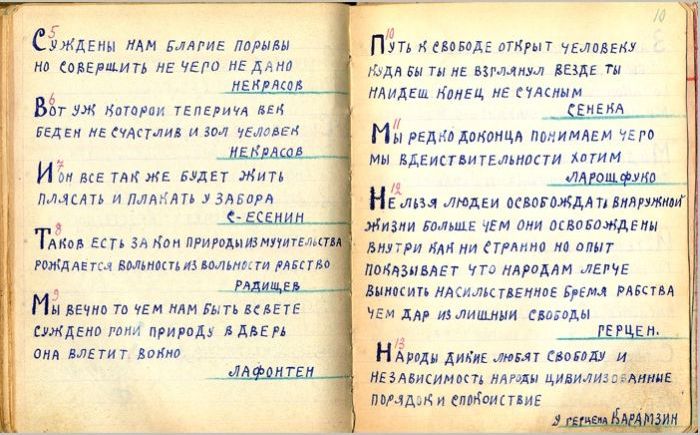 5
СУЖДЕНЫ НАМ БЛАГИЕ ПОРЫВЫ
НО СОВЕРШИТЬ НЕ ЧЕГО НЕ ДАНО
НЕКРАСОВ
6
ВОТ УЖ КОТОРОИ ТЕПЕРИЧА ВЕК
БЕДЕН НЕ СЧАСТЛИВ И ЗОЛ ЧЕЛОВЕК
НЕКРАСОВ
7
И ОН ВСЕ ТАК ЖЕ БУДЕТ ЖИТЬ
ПЛЯСАТЬ И ПЛАКАТЬ У ЗАБОРА
С-ЕСЕНИН
8
ТАКОВ ЕСТЬ ЗАКОН ПРИРОДЫ ИЗ МУЧИТЕЛЬСТВА
РОЖДАЕТСЯ ВОЛЬНОСТЬ ИЗ ВОЛЬНОСТИ РАБСТВО
РАДИЩЕВ
9
МЫ ВЕЧНО ТО ЧЕМ НАМ БЫТЬ ВСВЕТЕ
СУЖДЕНО ГОНИ ПРИРОДУ В ДВЕРЬ
ОНА ВЛЕТИТ ВОКНО
ЛАФОНТЕН
10
10
ПУТЬ К СВОБОДЕ ОТКРЫТ ЧЕЛОВЕКУ
КУДА БЫ ТЫ НЕ ВЗГЛЯНУЛ ВЕЗДЕ ТЫ
НАИДЕШ КОНЕЦ НЕ СЧАСНЫМ
СЕНЕКА
11
МЫ РЕДКО ДОКОНЦА ПОНИМАЕМ ЧЕГО
МЫ ВДЕИСТВИТЕЛЬНОСТИ ХОТИМ
ЛАРОШФУКО
12
НЕЛЬЗЯ ЛЮДЕИ ОСВОБОЖДАТЬ ВНАРУЖНОИ
ЖИЗНИ БОЛЬШЕ ЧЕМ ОНИ ОСВОБОЖДЕНЫ
ВНУТРИ КАК НИ СТРАННО НО ОПЫТ
ПОКАЗЫВАЕТ ЧТО НАРОДАМ ЛЕГЧЕ
ВЫНОСИТЬ НАСИЛЬСТВЕННОЕ БРЕМЯ РАБСТВА
ЧЕМ ДАР ИЗЛИШНЫИ СВОБОДЫ
ГЕРЦЕН.
13
НАРОДЫ ДИКИЕ ЛЮБЯТ СВОБОДУ И
НЕЗАВИСИМОСТЬ НАРОДЫ ЦИВИЛИЗОВАННЫЕ
ПОРЯДОК И СПОКОИСТВИЕ
У ГЕРЦЕНА КАРАМЗИН